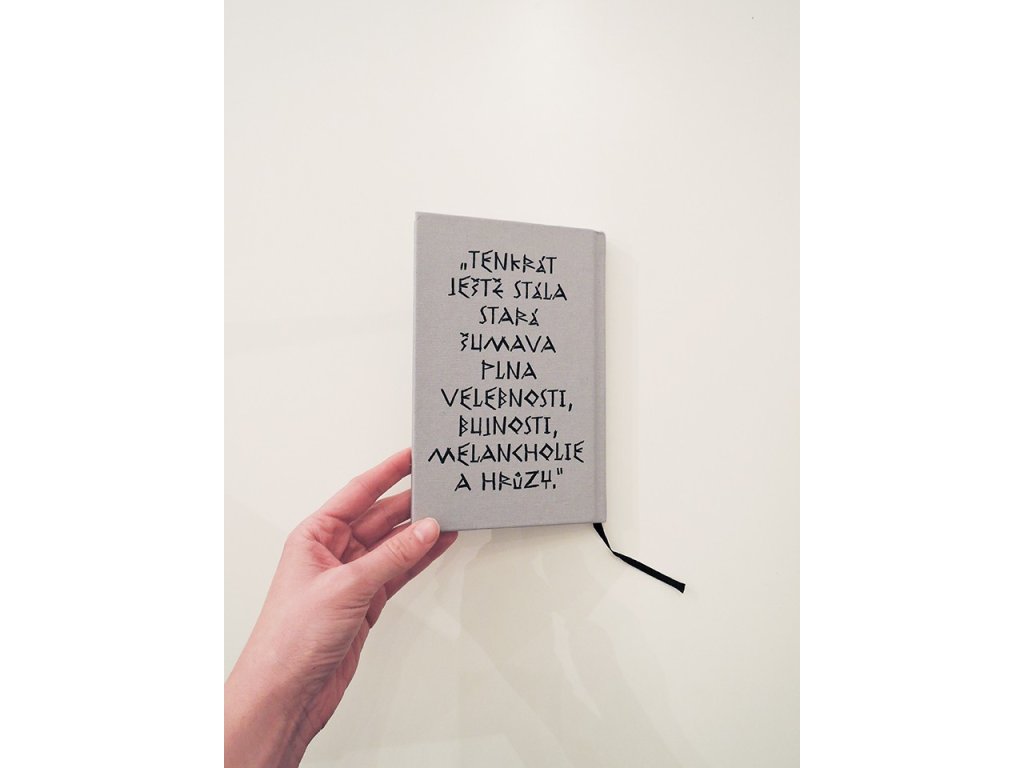 „TENKRÁT
JEŠTĚ STÁLA
STARÁ
ŠUMAVA
PLNA
VELEBNOSTI,
BUJNOSTI,
MELANCHOLIE
A HRŮZY.“